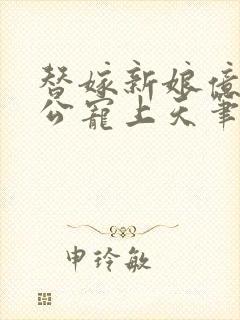 替嫁新娘億
公寵上天筆
申玲敏